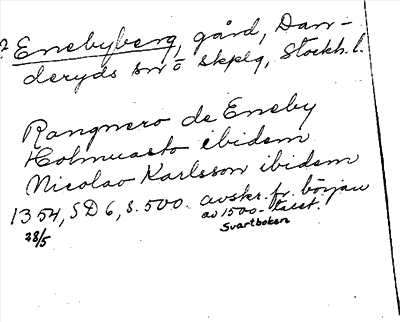 ? Enebyberg, gård, Dan-
deryds sn o skplg, Stockh. l.
Rangnero de Eneby
Holmuasto ibidem
Nicolao Karlsson ibidem
1354, SD 6, s. 500. avskr. fr. början
av 1500-talet.
28/5
Svartboken